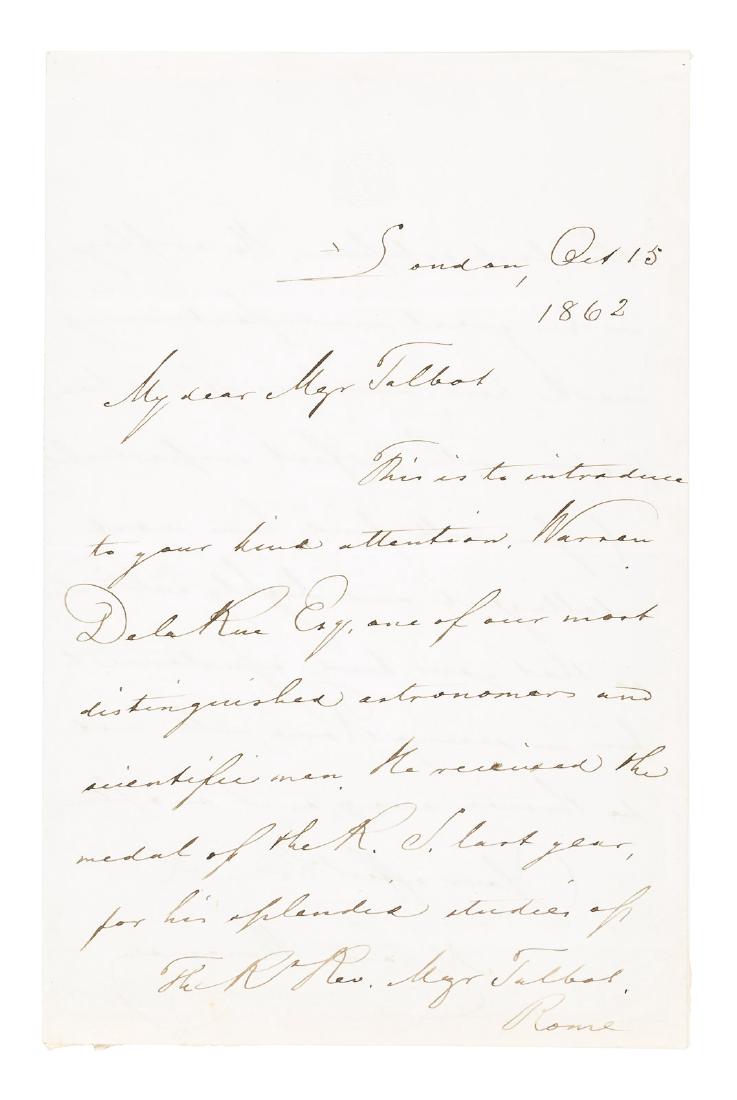 London, Oct 15
1862
My dear Mgr Talbot
This is to introduce
to your kind attention, Warren
De la Rue Esq, one of our most
distinguished astronomers and
scientific men. He received the
medal of the R. S. last year,
for his splendid studies of
The Rt Rev. Mgr Talbot.
Rome